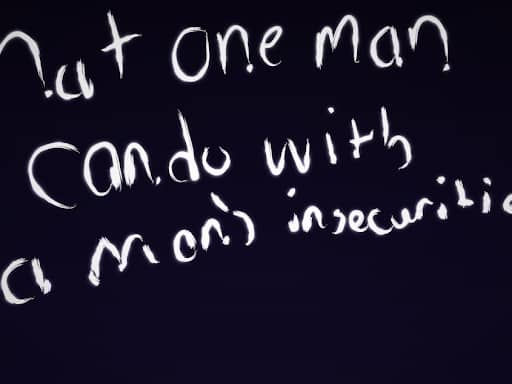 hat one man
Can do with
a man's insecuritie